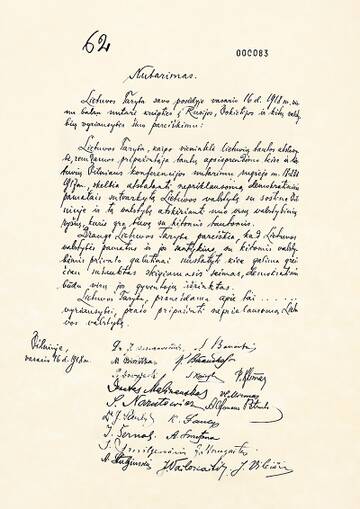 62
000083
Nutarimas.
Lietuvos Taryba savo posėdyje vasario 16 d. 1918 m. vienu
balsu nutarė kreiptis į Rusijos, Vokietijos ir kitų valsty-
bių vyriausybes šiuo pareiškimu:
Lietuvos Taryba, kaipo vienintelė lietuvių tautos atstovy-
bė, remdamos pripažintąja tautų apsisprendimo teise ir lie-
tuvių Vilniaus konferencijos nutarimu rugsėjo m. 18-23 d.
1917 m., skelbia atstatanti nepriklausomą demokratiniais
pamatais sutvarkytą Lietuvos valstybę su sostine Vil-
niuje ir tą valstybę atskirianti nuo visų valstybinių
ryšių, kurie yra buvę su kitomis tautomis.
Drauge Lietuvos Taryba pareiškia, kad Lietuvos
valstybės pamatus ir jos santykius su kitomis valsty-
bėmis privalo galutinai nustatyti kiek galima grei-
čiau sušauktas steigiamasis seimas, demokratiniu
būdu visų jos gyventojų išrinktas.
Lietuvos Taryba, pranešdama apie tai . . . . . .
vyriausybei, prašo pripažinti nepriklausomą Lietu-
vos valstybę.
Vilniuje,
vasario 16 d. 1918 m.
Dr. J. Basanavičius S. Banaitis
M. Biržiška K. Bizauskas
P. Klimas
Donatas Malinauskas Vl. Mironas
S. Narutowicz
K. Šaulys
J. Šernas A. Smetona
J. Smilgevičius
J. Vailokaitis J. Vileišis